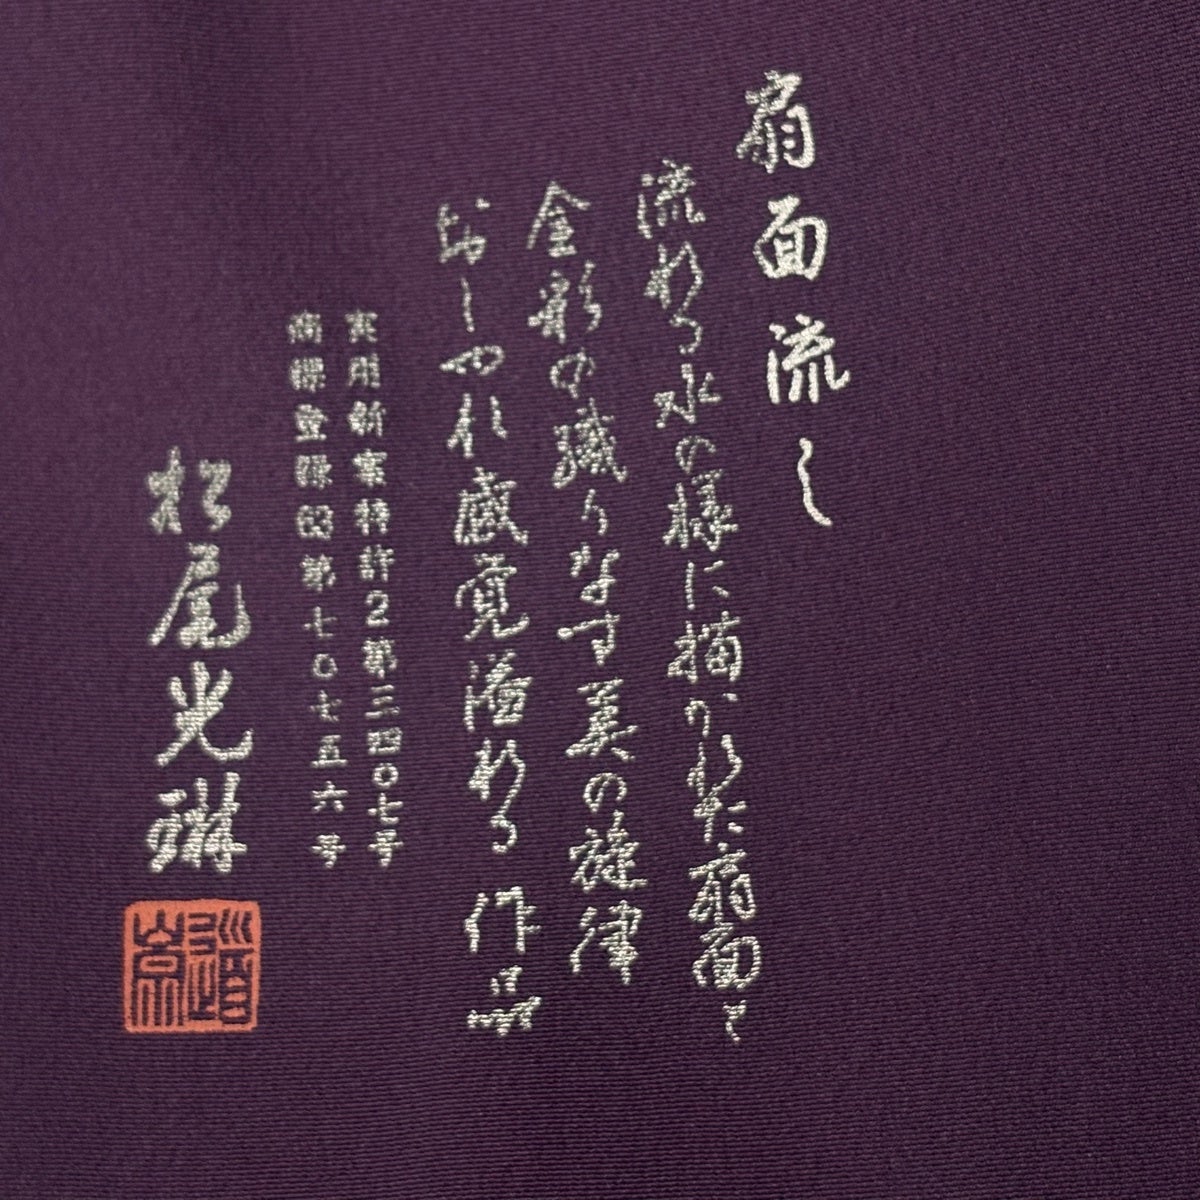 扇面流し
流れる水の様に描かれた扇面と
金彩の織りなす美の旋律
おしゃれ感覚溢れる作品
実用新案特許2第三四〇七号
商標登録図第七〇七五六号
松尾光琳